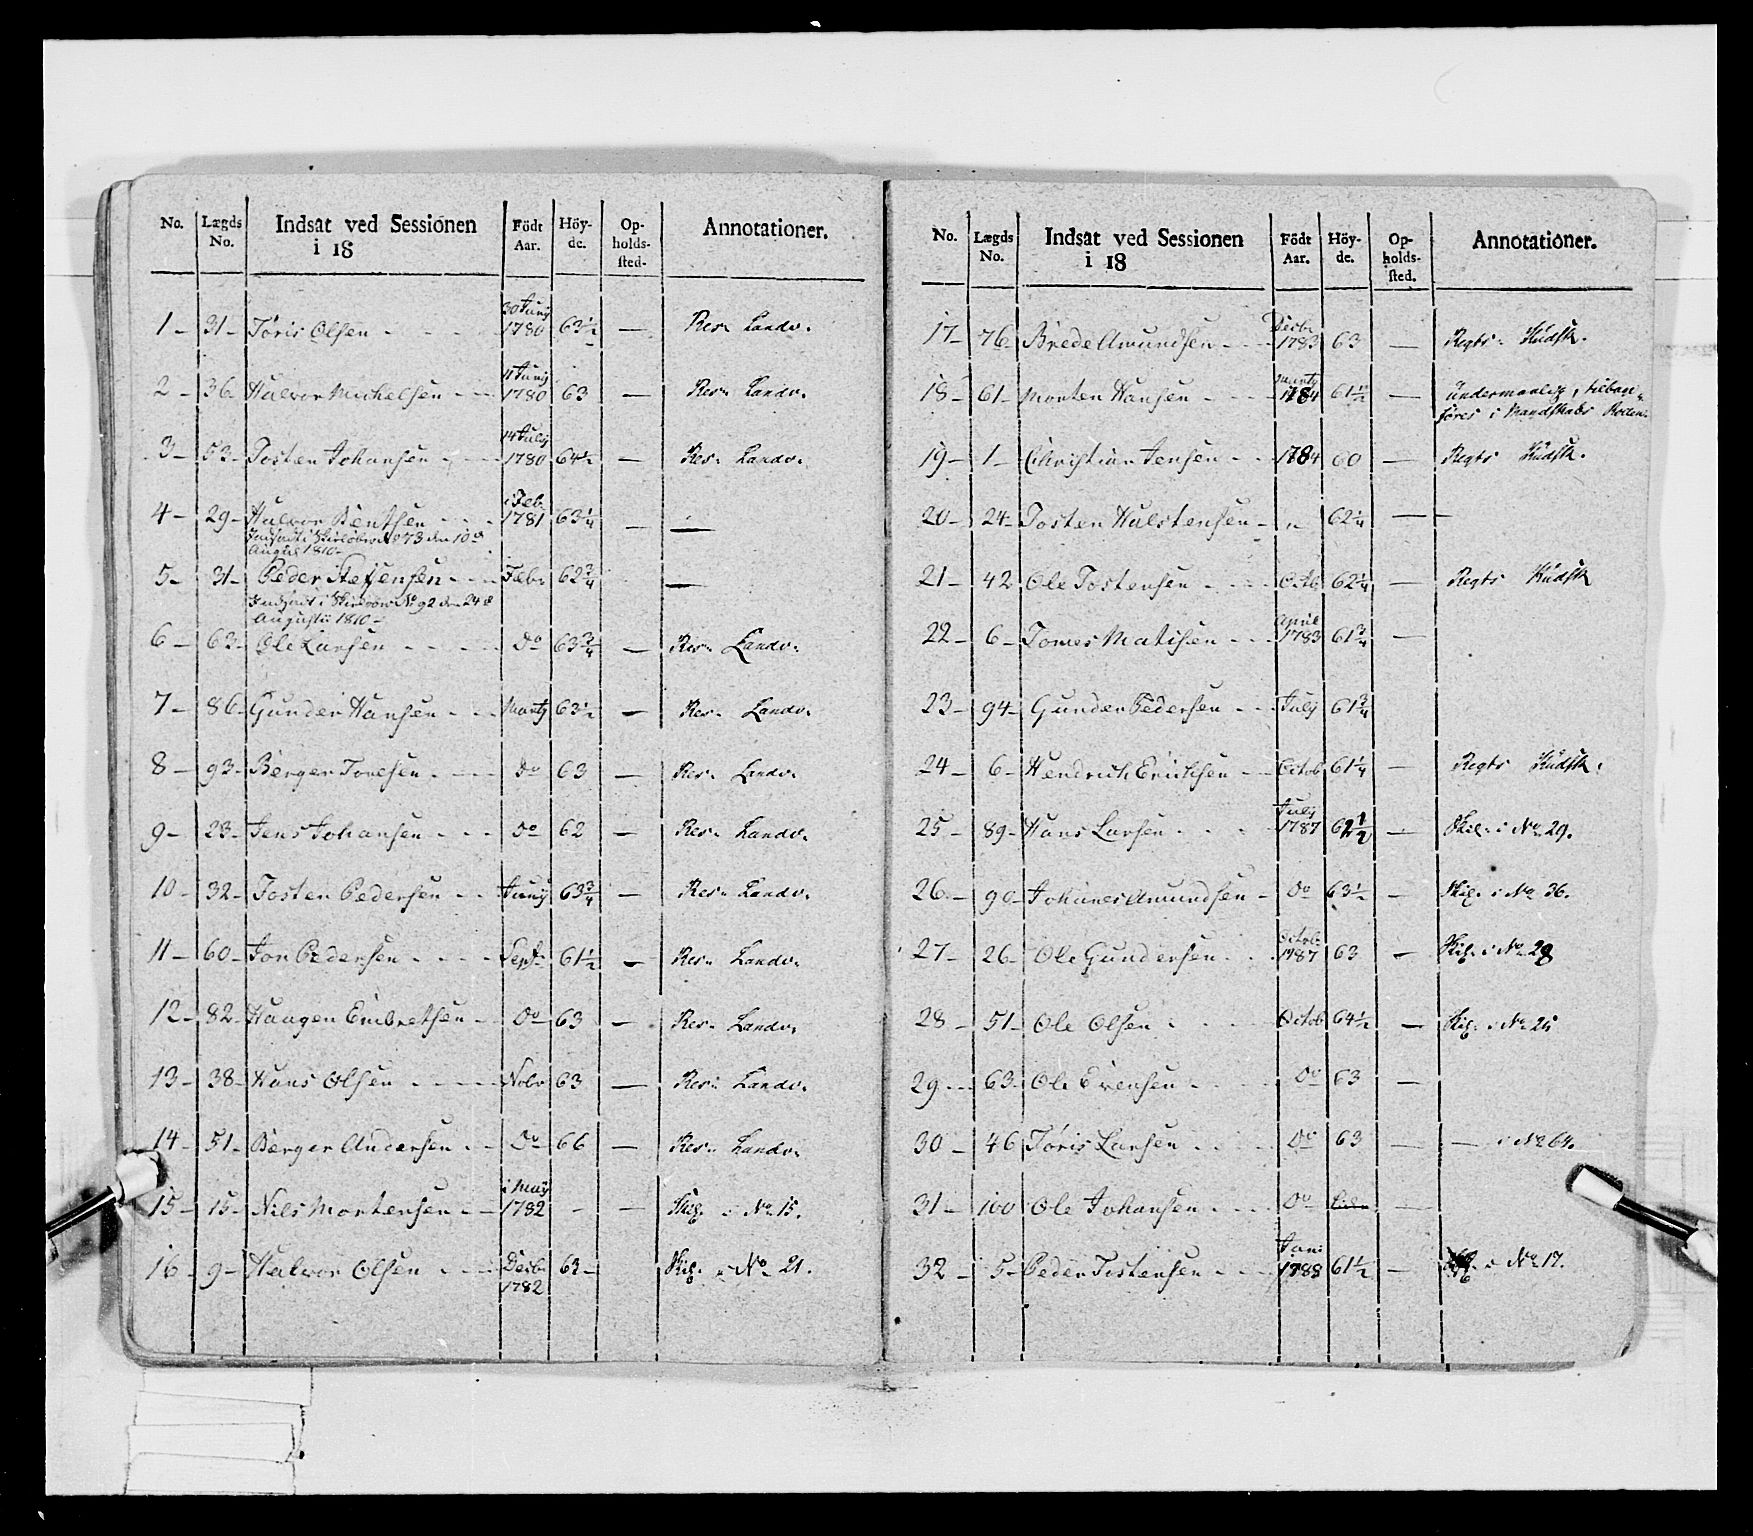 No. Lægds No. Indsat ved Sessionen i 18 Födt Aar. Höy-de. Op-holds-sted. Annotationer.
1 - 31 - Töris Olsen - 30 Juny 1780 63½ — Res. Landv.
2 - 36 Halvor Mickelsen - 11 Juny 1780 63 — Res. Landv.
3 - 53 - Tosten Johansen - 14 July 1780 64½ — Res. Landv.
4 - 29 - Halvor Bentsen - i Feb. 1781 63¼ — —
Indsadt i No 73 den 10 d
August 1810 -
5 - 31 - Peder Steffensen - Febr 62¾ —
Indsadt i No 92 den 24 d
Augustii 1810 -
6 - 63 - Ole Larsen - Do 63¾ — Res. Landv.
7 - 86 - Gunder Hansen - Marty 63½ — Res. Landv.
8 - 93 - Berger Torelsen - Do 63 — Res. Landv.
9 - 23 - Jens Johansen - Do 62 — Res. Landv.
10 - 32 - Tosten Pedersen - Juny 63¾ — Res. Landv.
11 - 60 - Jon Pedersen - Septr 61½ — Res. Landv.
12 - 82 - Haagen Embretsen - Do 63 — Res. Landv.
13 - 38 - Hans Olsen - Nobr 63 — Res. Landv.
14 - 51 - Berger Andersen - Do 66 — Res. Landv.
15 - 15 - Nils Mortensen - i May 1782 - — Skil. i No 15.
16 - 9 - Halvor Olsen - Desbr 1782 63 - Skil. i No 21.
No. Lægds No. Indsat ved Sessionen i 18 Födt Aar. Höy-de. Op-holds-sted. Annotationer.
17 - 76 Brede Amundsen - Desbr 1783 63 — Regts Kudsk.
18 - 61 - Morten Hansen - Marty 1784 61½ — undermaalig, tilbage
föres i Mandskabs Rollen
19 - 1 - Christian Jensen - 1784 60 — Regts Kudsk.
20 - 24 - Tosten Halstensen - " 62¼ — —
21 - 42 Ole Tostensen - Octb 62¼ — Regts Kudsk
22 - 6 - Tomes Matisen - April 1783 61¾ —
23 - 94 - Gunder Pedersen - July 61¾
24 - 6 - Hendrich Erichsen - Octob 61¼ — Regts Kudsk.
25 - 89 - Hans Larsen - July 1787 62½ — Skil. i No 29.
26 - 90 - Johanes Amundsen - Do 63½ — Skil. i No 36.
27 - 26 - Ole Gundersen - Octobr 1787 63 — Skil. i No 28
28 - 51 - Ole Olsen - Octob 64½ — Skil. i No 25
29 - 63 - Ole Evensen - Do 63 —
30 - 46 Töris Larsen - Do 63 — — i No 64.
31 - 100 Ole Johansen - Do —
32 - 5 - Peder Tostensen - Jani 1788 61½ — i No 17.